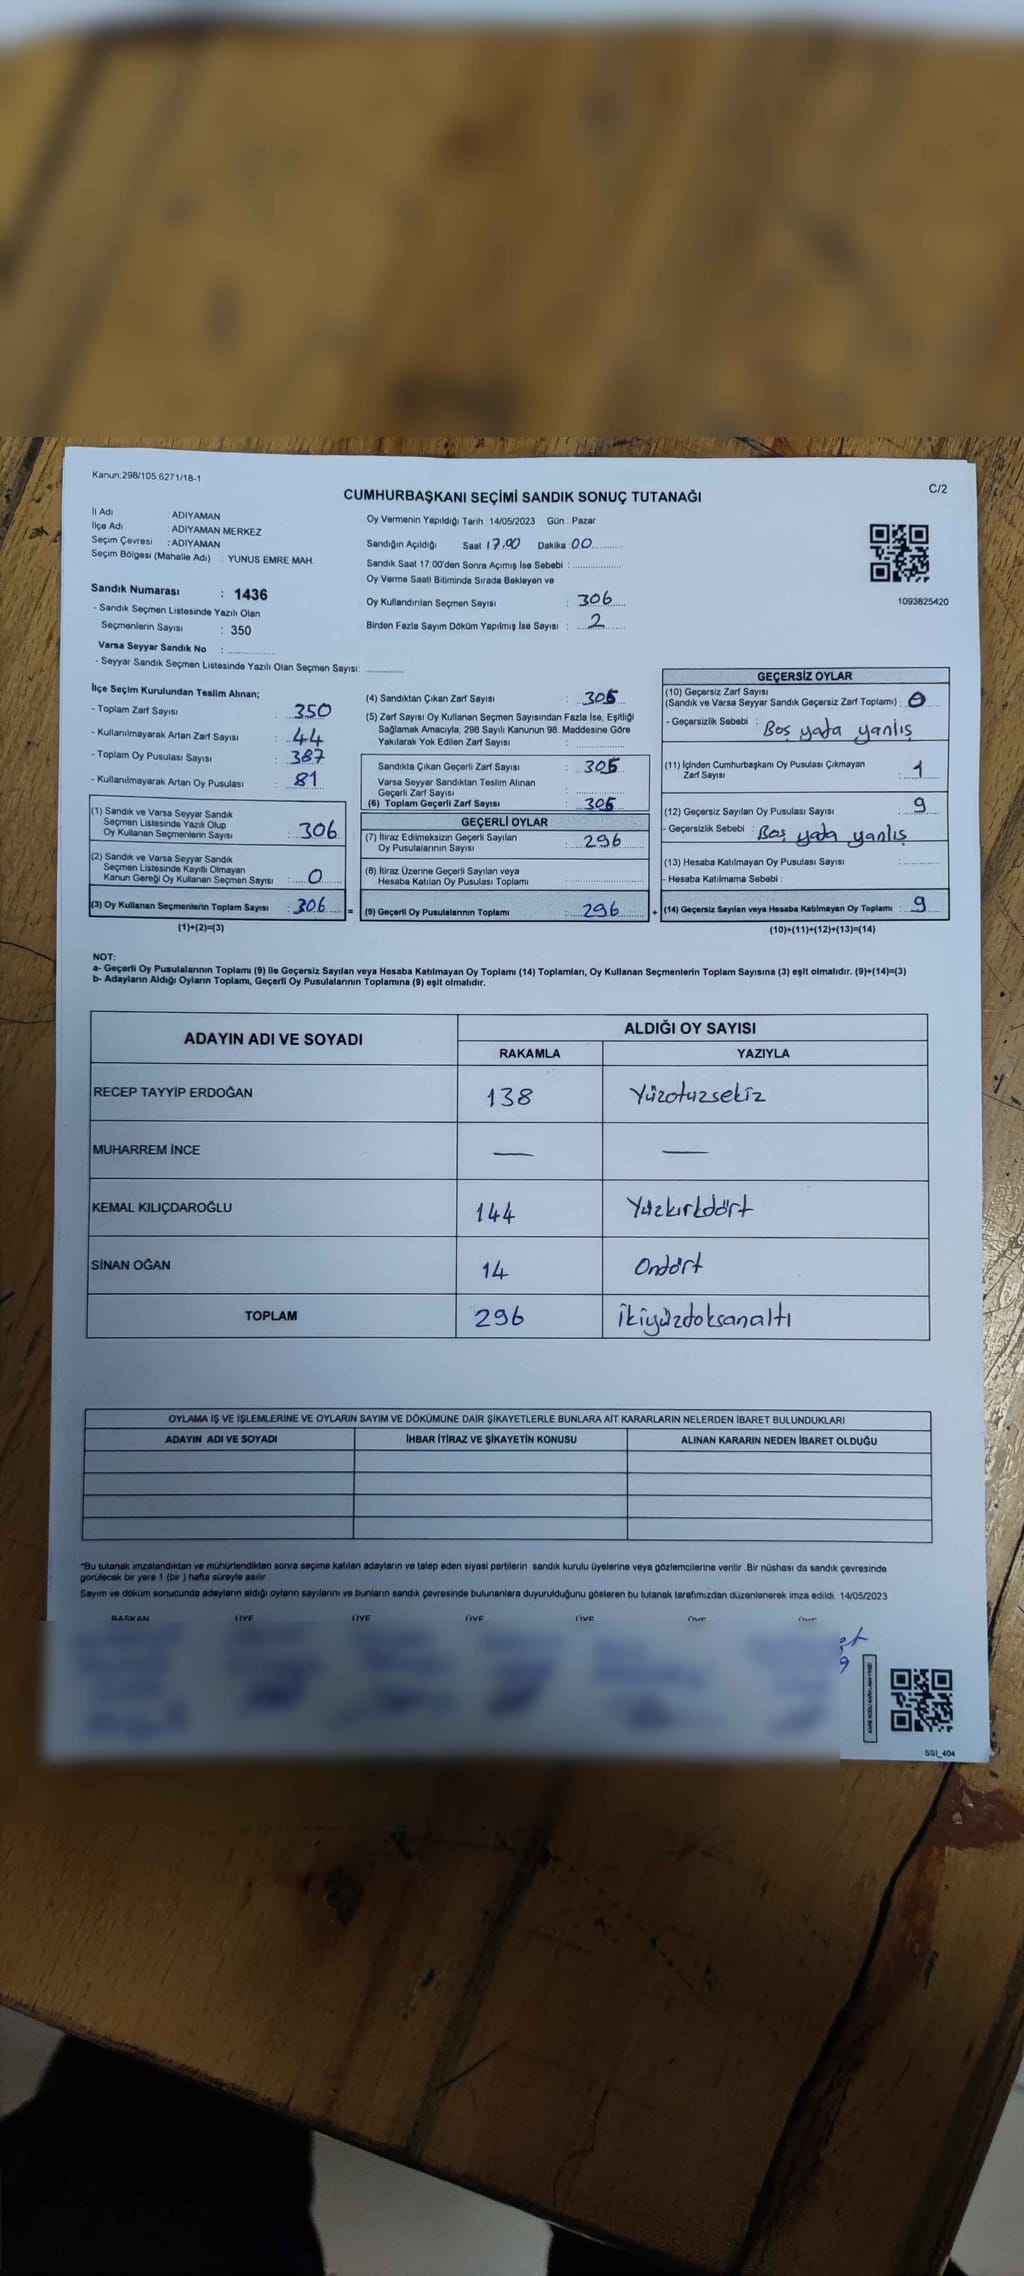 Kanun:298/105,6271/18-1
C/2
CUMHURBAŞKANI SEÇİMİ SANDIK SONUÇ TUTANAĞI
İl Adı : ADIYAMAN
İlçe Adı : ADIYAMAN MERKEZ
Seçim Çevresi : ADIYAMAN
Seçim Bölgesi (Mahalle Adı) : YUNUS EMRE MAH.
Sandık Numarası : 1436
- Sandık Seçmen Listesinde Yazılı Olan
Seçmenlerin Sayısı : 350
Varsa Seyyar Sandık No :
- Seyyar Sandık Seçmen Listesinde Yazılı Olan Seçmen Sayısı:
Oy Vermenin Yapıldığı Tarih : 14/05/2023 Gün : Pazar
Sandığın Açıldığı Saat 17,00 Dakika :00
Sandık Saat 17:00'den Sonra Açımış İse Sebebi :
Oy Verme Saati Bitiminde Sırada Bekleyen ve
Oy Kullandırılan Seçmen Sayısı : 306
Birden Fazla Sayım Döküm Yapılmış İse Sayısı : 2
1093825420
İlçe Seçim Kurulundan Teslim Alınan;
- Toplam Zarf Sayısı : 350
- Kullanılmayarak Artan Zarf Sayısı : 44
- Toplam Oy Pusulası Sayısı : 387
- Kullanılmayarak Artan Oy Pusulası : 81
(1) Sandık ve Varsa Seyyar Sandık
Seçmen Listesinde Yazılı Olup
Oy Kullanan Seçmenlerin Sayısı : 306
(2) Sandık ve Varsa Seyyar Sandık
Seçmen Listesinde Kayıtlı Olmayan
Kanun Gereği Oy Kullanan Seçmen Sayısı : 0
(3) Oy Kullanan Seçmenlerin Toplam Sayısı : 306 =
(1)+(2)=(3)
(4) Sandıktan Çıkan Zarf Sayısı : 305
(5) Zarf Sayısı Oy Kullanan Seçmen Sayısından Fazla İse, Eşitliği
Sağlamak Amacıyla, 298 Sayılı Kanunun 98. Maddesine Göre
Yakılarak Yok Edilen Zarf Sayısı :
Sandıkta Çıkan Geçerli Zarf Sayısı : 305
Varsa Seyyar Sandıktan Teslim Alınan
Geçerli Zarf Sayısı :
(6) Toplam Geçerli Zarf Sayısı : 305
GEÇERLİ OYLAR
(7) İtiraz Edilmeksizin Geçerli Sayılan
Oy Pusulalarının Sayısı : 296
(8) İtiraz Üzerine Geçerli Sayılan veya
Hesaba Katılan Oy Pusulası Toplamı :
(9) Geçerli Oy Pusulalarının Toplamı : 296 +
GEÇERSİZ OYLAR
(10) Geçersiz Zarf Sayısı
(Sandık ve Varsa Seyyar Sandık Geçersiz Zarf Toplamı) : 0
- Geçersizlik Sebebi : Boş yada yanlış
(11) İçinden Cumhurbaşkanı Oy Pusulası Çıkmayan
Zarf Sayısı : 1
(12) Geçersiz Sayılan Oy Pusulası Sayısı : 9
- Geçersizlik Sebebi : Boş yada yanlış
(13) Hesaba Katılmayan Oy Pusulası Sayısı :
- Hesaba Katılmama Sebebi :
(14) Geçersiz Sayılan veya Hesaba Katılmayan Oy Toplamı : 9
(10)+(11)+(12)+(13)=(14)
NOT:
a- Geçerli Oy Pusulalarının Toplamı (9) ile Geçersiz Sayılan veya Hesaba Katılmayan Oy Toplamı (14) Toplamları, Oy Kullanan Seçmenlerin Toplam Sayısına (3) eşit olmalıdır. (9)+(14)=(3)
b- Adayların Aldığı Oyların Toplamı, Geçerli Oy Pusulalarının Toplamına (9) eşit olmalıdır.
ADAYIN ADI VE SOYADI ALDIĞI OY SAYISI
RAKAMLA YAZIYLA
RECEP TAYYİP ERDOĞAN 138 Yüzotuzsekiz
MUHARREM İNCE — —
KEMAL KILIÇDAROĞLU 144 Yüzkırkdört
SİNAN OĞAN 14 Ondört
TOPLAM 296 İkiyüzdoksanaltı
OYLAMA İŞ VE İŞLEMLERİNE VE OYLARIN SAYIM VE DÖKÜMÜNE DAİR ŞİKAYETLERLE BUNLARA AİT KARARLARIN NELERDEN İBARET BULUNDUKLARI
ADAYIN ADI VE SOYADI İHBAR İTİRAZ VE ŞİKAYETİN KONUSU ALINAN KARARIN NEDEN İBARET OLDUĞU
*Bu tutanak imzalandıktan ve mühürlendikten sonra seçime katılan adayların ve talep eden siyasi partilerin sandık kurulu üyelerine veya gözlemcilerine verilir. Bir nüshası da sandık çevresinde
görülecek bir yere 1 (bir) hafta süreyle asılır.
Sayım ve döküm sonucunda adayların aldığı oyların sayılarını ve bunların sandık çevresinde bulunanlara duyurulduğunu gösteren bu tutanak tarafımızdan düzenlenerek imza edildi. 14/05/2023
BAŞKAN ÜYE ÜYE ÜYE ÜYE ÜYE ÜYE
SSI_404